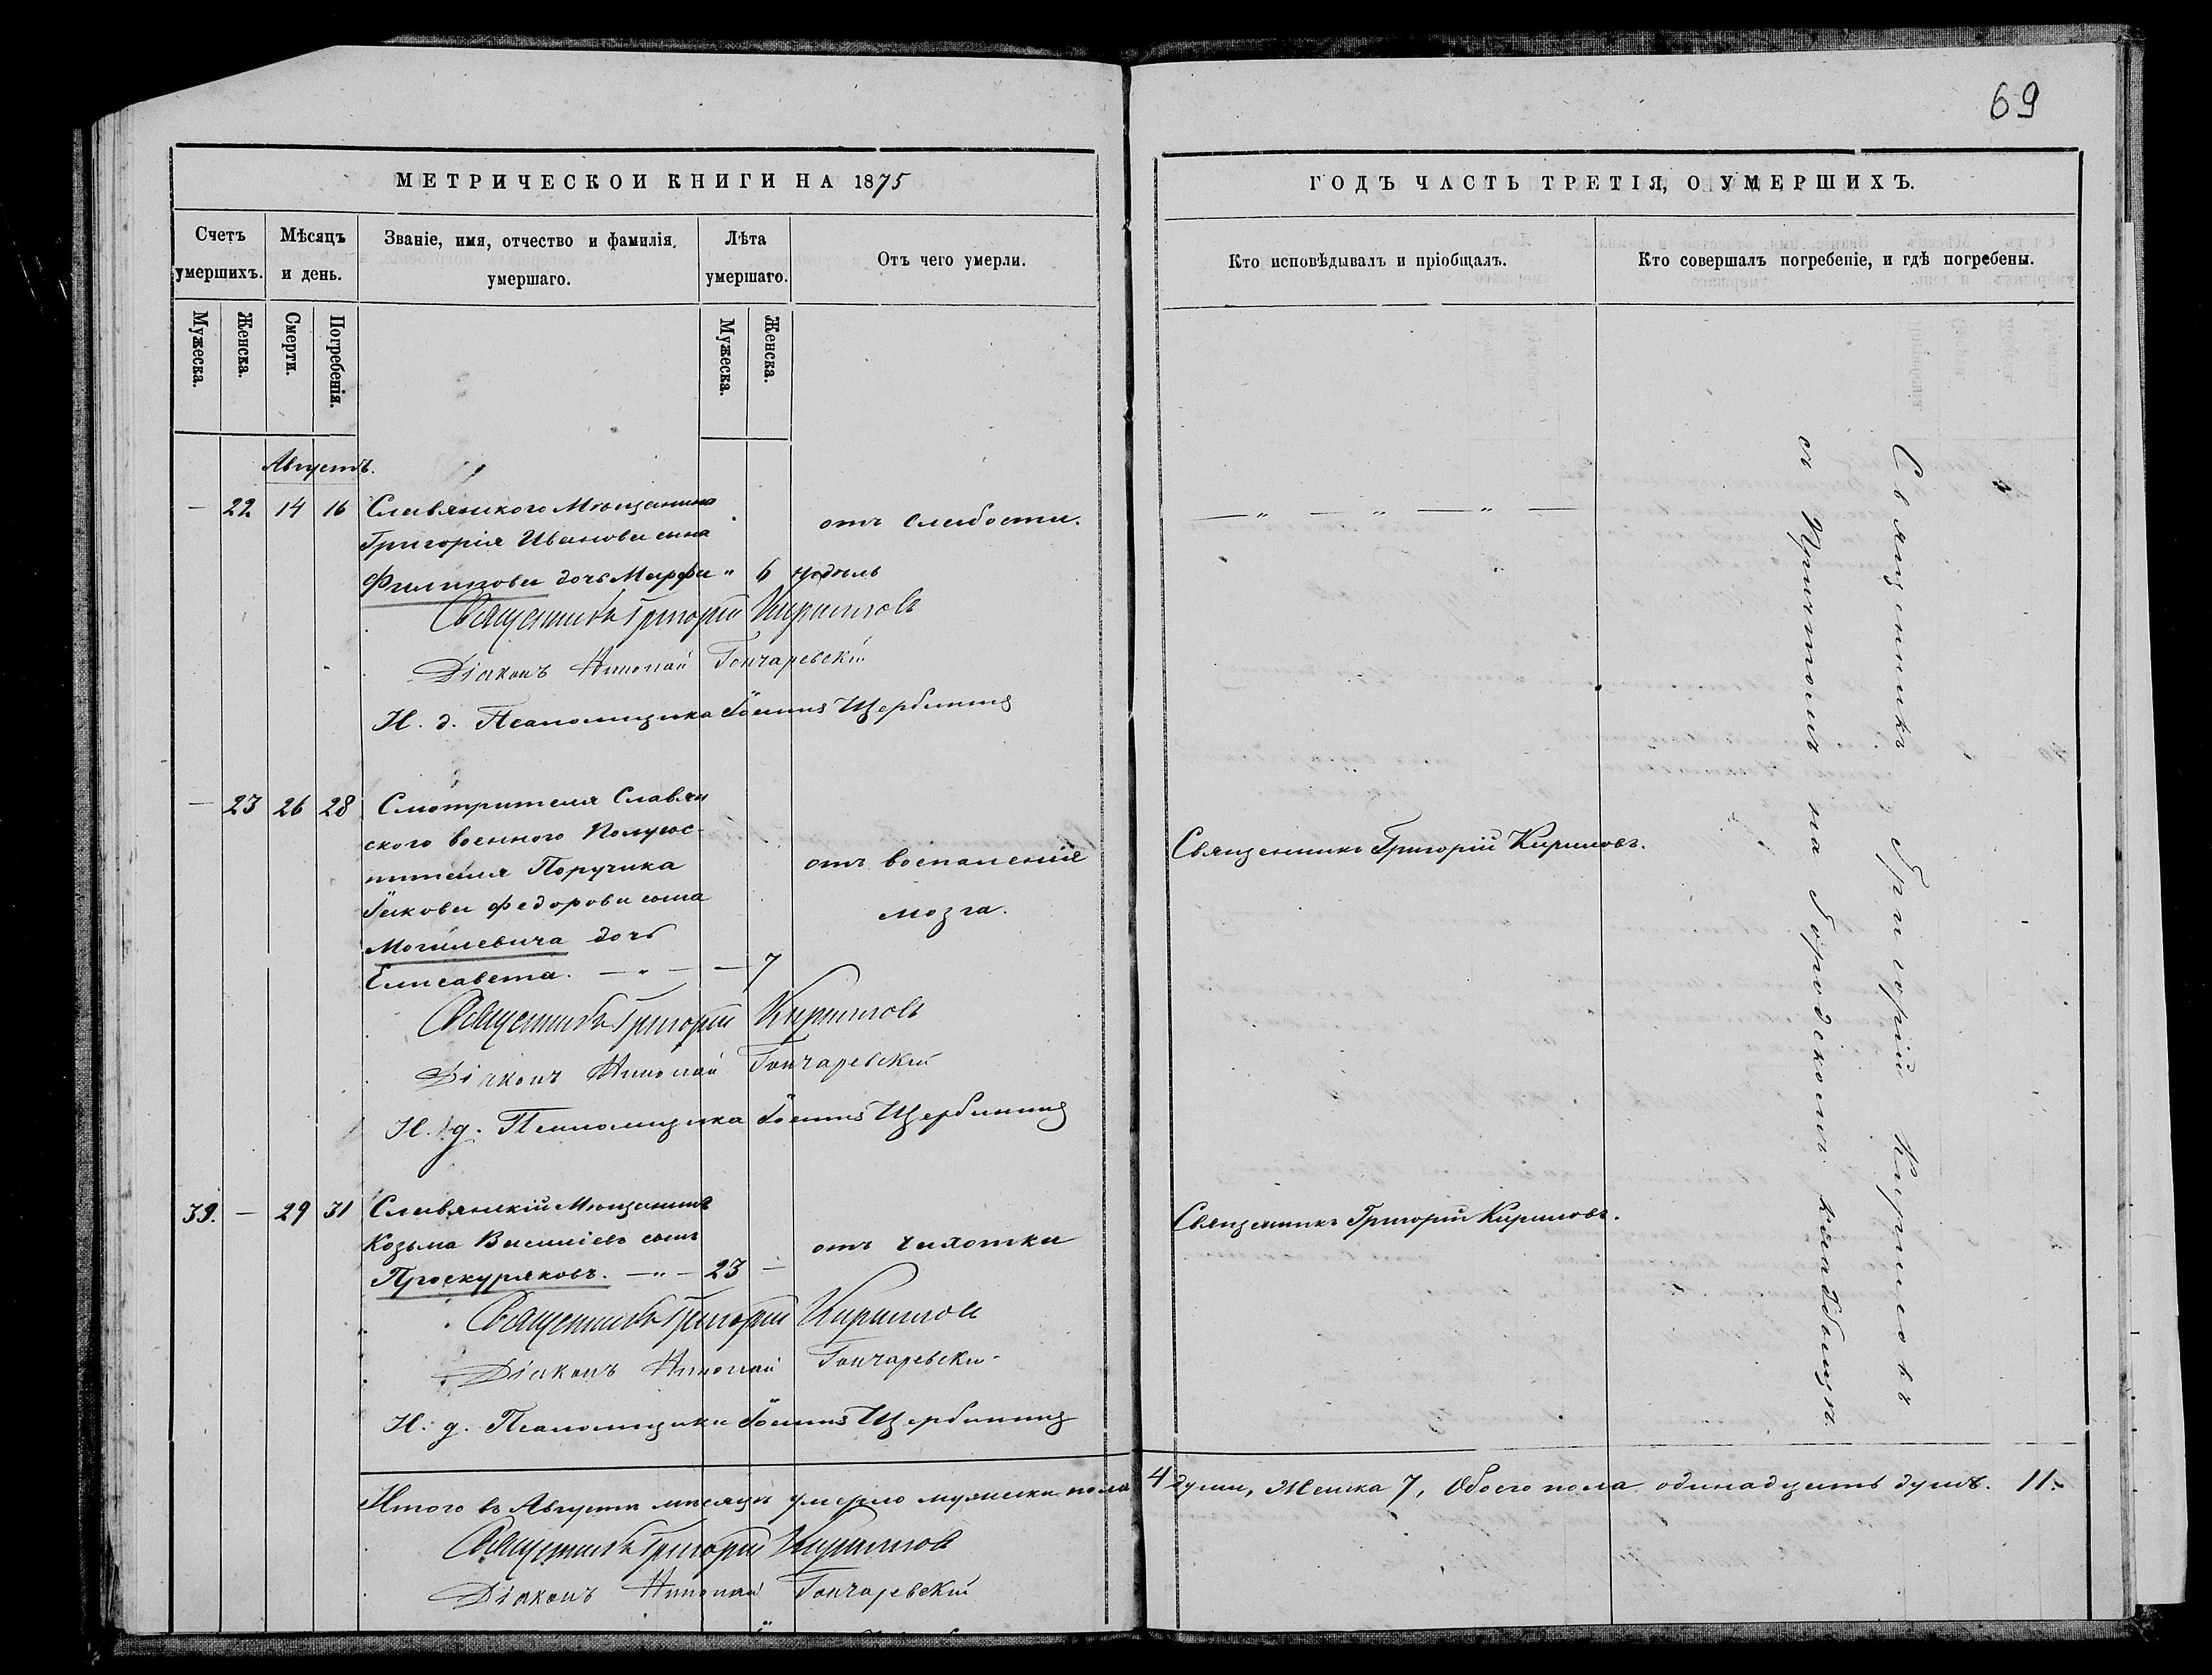 69
МЕТРИЧЕСКОЙ КНИГИ НА 1875
ГОДЪ ЧАСТЬ ТРЕТІЯ, О УМЕРШИХЪ.
Счетъ умершихъ.
Мѣсяцъ и день.
Званіе, имя, отчество и фамилія умершаго.
Лѣта умершаго.
Отъ чего умерли.
Кто исповѣдывалъ и пріобщалъ.
Кто совершалъ погребеніе, и гдѣ погребены.
Мужеска.
Женска.
Смерти.
Погребенія.
Мужеска.
Женска.
Августъ.
— 22 14 16 Славянского Мѣщанина
Григорія Иванова сына отъ слабости. — „ — „ — „ —
Филипова дочь Марфа „ 6 недѣль
Священникъ Григорій Кириловъ
Діаконъ Николай Гончаревскій
И. д. Псаломщика Іоаннъ Щербининъ
— 23 26 28 Смотрителя Славян
ского военного Полугос-
питаля Поручика отъ воспаленія Священникъ Григорій Кириловъ.
Іакова Федорова сына мозга.
Могилевича дочь
Елисавета. — „ — — 7
Священникъ Григорій Кириловъ
Діаконъ Николай Гончаревскій
И. д. Псаломщика Іоаннъ Щербининъ
39. — 29 31 Славянскій Мѣщанинъ Священникъ Григорій Кириловъ.
Козьма Василіевъ сынъ отъ чахотки
Проскуряковъ. — „ — 23 —
Священникъ Григорій Кириловъ
Діаконъ Николай Гончаревскій
И. д. Псаломщика Іоаннъ Щербининъ
Священникъ Григорій Кириловъ
съ Причтомъ на Городскомъ кладбищѣ.
Итого въ Августѣ мѣсяцѣ умерло мужеска пола 4 души, Женска 7, Обоего пола одинадцать душъ. 11.
Священникъ Григорій Кириловъ
Діаконъ Николай Гончаревскій